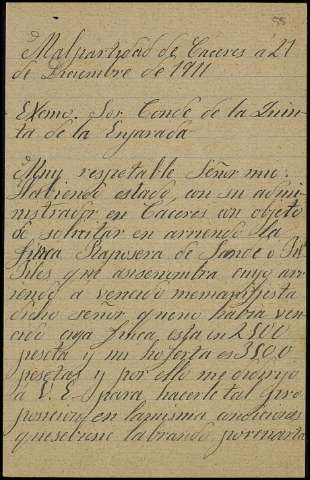 58
Malpartidad de Caceres á 21
de Diciembre de 1911
Exsmo. Sor. Conde de la Quin-
ta de la Enjarada
Muy respetable Señor mio:
Habiendo estado, con su admi-
nistrador en Caceres con objeto
de solicitar en arriendo la
finca Raposera de Sande o
Siles que
riendo á vencido memanifiesta
dicho señor, queno habia ven-
cido cuya finca, esta en 2500
peseta y mi hoferta es 3500
pesetas y por ello me dirijo
a V. E. para hacerle tal pro
posicion en lamisma condiciones
quesebiene labrando, porcuarta